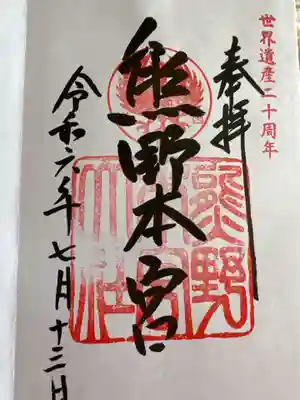 世界遺産二十周年
奉拝
熊野本宮
熊野本宮大社
令和六年七月十三日